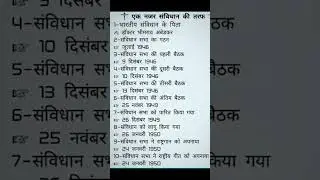 एक नजर संविधान की तरफ
1-भारतीय संविधान के पिता
☞ डॉक्टर भीमराव अंबेडकर
2-संविधान सभा का गठन
☞ जुलाई 1946
3-संविधान सभा की पहली बैठक
☞ 9 दिसंबर 1946
4-संविधान सभा की दूसरी बैठक
☞ 10 दिसंबर 1946
5-संविधान सभा की तीसरी बैठक
☞ 13 दिसंबर 1946
6-संविधान सभा की अंतिम बैठक
☞ 25 नवंबर 1949
7-संविधान को पारित किया गया
☞ 26 1949
8-संविधान को लागू किया गया
☞ 26 जनवरी 1950
9-संविधान सभा ने राष्ट्रगान को अपनाया
☞ 24 जनवरी 1950
10-संविधान सभा ने राष्ट्रीय गीत को अपनाया
☞ 24 जनवरी 1950